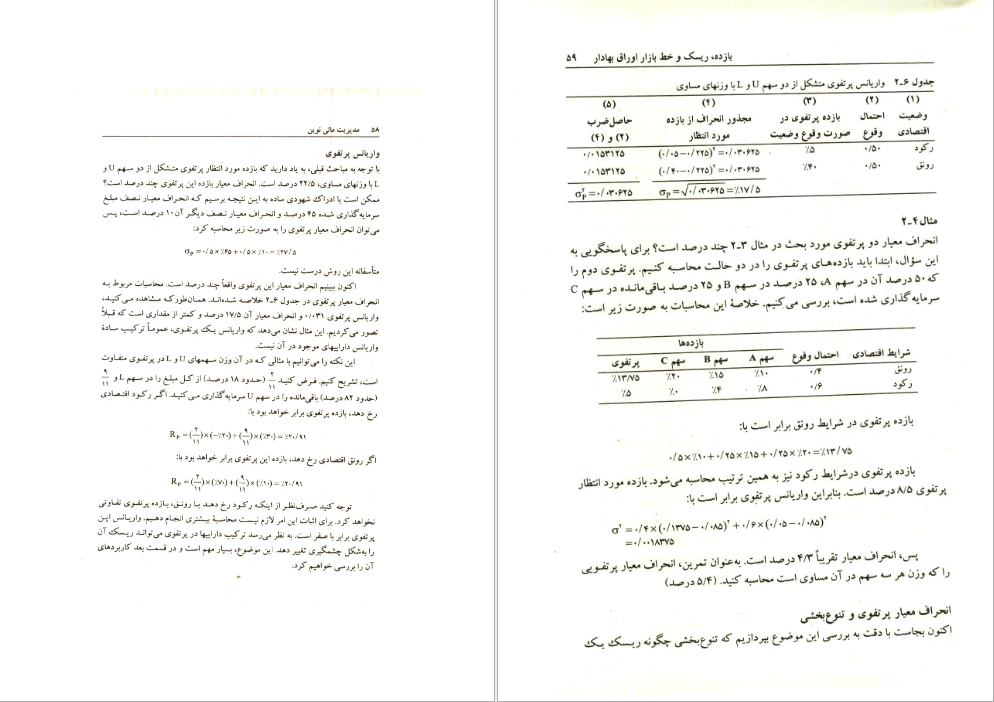 ۵۸ مدیریت مالی نوین
واریانس پرتفوی
با توجه به مباحث قبلی، به یاد دارید که بازده مورد انتظار پرتفوی متشکل از دو سهم U و
L با وزنهای مساوی، ۲۲/۵ درصد است. انحراف معیار بازده این پرتفوی چند درصد است؟
ممکن است با ادراک شهودی ساده به این نتیجه برسیم که انحراف معیار نصف مبلغ
سرمایه‌گذاری شده ۴۵ درصد و انحراف معیار نصف دیگر آن ۱۰ درصد است، پس
می‌توان انحراف معیار پرتفوی را به صورت زیر محاسبه کرد:
σP = ۰/۵×٪۴۵+۰/۵×٪۱۰=٪۲۷/۵
متأسفانه این روش درست نیست.
اکنون ببینیم انحراف معیار این پرتفوی واقعاً چند درصد است. محاسبات مربوط به
انحراف معیار پرتفوی در جدول ۶-۲ خلاصه شده‌اند. همان‌طورکه مشاهده می‌کنید،
واریانس پرتفوی ۰/۰۳۱ و انحراف معیار آن ۱۷/۵ درصد و کمتر از مقداری است که قبلاً
تصور می‌کردیم. این مثال نشان می‌دهد که واریانس یک پرتفوی، عموماً ترکیب سادهٔ
واریانس داراییهای موجود در آن نیست.
این نکته را می‌توانیم با مثالی که در آن وزن سهمهای U و L در پرتفوی متفاوت
است، تشریح کنیم. فرض کنید ۲/۱۱ (حدود ۱۸ درصد) از کل مبلغ را در سهم L و ۹/۱۱
(حدود ۸۲ درصد) باقی‌مانده را در سهم U سرمایه‌گذاری می‌کنید. اگر رکود اقتصادی
رخ دهد، بازده پرتفوی برابر خواهد بود با:
RP =(۲/۱۱)×(-٪۲۰)+(۹/۱۱)×(٪۳۰)=٪۲۰/۹۱
اگر رونق اقتصادی رخ دهد، بازده این پرتفوی برابر خواهد بود با:
RP =(۲/۱۱)×(٪۷۰)+(۹/۱۱)×(٪۱۰)=٪۲۰/۹۱
توجه کنید صرف‌نظر از اینکه رکود رخ دهد یا رونق، بازده پرتفوی تفاوتی
نخواهد کرد. برای اثبات این امر لازم نیست محاسبهٔ بیشتری انجام دهیم. واریانس این
پرتفوی برابر با صفر است. به نظر می‌رسد ترکیب داراییها در پرتفوی می‌تواند ریسک آن
را به‌شکل چشمگیری تغییر دهد. این موضوع، بسیار مهم است و در قسمت بعد کاربردهای
آن را بررسی خواهیم کرد.
بازده، ریسک و خط بازار اوراق بهادار ۵۹
جدول ۶-۲ واریانس پرتفوی متشکل از دو سهم U و L با وزنهای مساوی
(۱) (۲) (۳) (۴) (۵)
وضعیت احتمال بازده پرتفوی در مجذور انحراف از بازده حاصل‌ضرب
اقتصادی وقوع صورت وقوع وضعیت مورد انتظار (۲) و (۴)
رکود ۰/۵۰ ٪۵ (۰/۰۵-۰/۲۲۵)۲=۰/۰۳۰۶۲۵ ۰/۰۱۵۳۱۲۵
رونق ۰/۵۰ ٪۴۰ (۰/۴۰-۰/۲۲۵)۲=۰/۰۳۰۶۲۵ ۰/۰۱۵۳۱۲۵
σP=√۰/۰۳۰۶۲۵=٪۱۷/۵ σ۲P=۰/۰۳۰۶۲۵
مثال ۴-۲
انحراف معیار دو پرتفوی مورد بحث در مثال ۳-۲ چند درصد است؟ برای پاسخگویی به
این سؤال، ابتدا باید بازده‌های پرتفوی را در دو حالت محاسبه کنیم. پرتفوی دوم را
که ۵۰ درصد آن در سهم A، ۲۵ درصد در سهم B و ۲۵ درصد باقی‌مانده در سهم C
سرمایه‌گذاری شده است، بررسی می‌کنیم. خلاصهٔ این محاسبات به صورت زیر است:
بازده‌ها
شرایط اقتصادی احتمال وقوع سهم A سهم B سهم C پرتفوی
رونق ۰/۴ ٪۱۰ ٪۱۵ ٪۲۰ ٪۱۳/۷۵
رکود ۰/۶ ٪۸ ٪۴ ٪۰ ٪۵
بازده پرتفوی در شرایط رونق برابر است با:
۰/۵×٪۱۰+۰/۲۵×٪۱۵+۰/۲۵×٪۲۰=٪۱۳/۷۵
بازده پرتفوی درشرایط رکود نیز به همین ترتیب محاسبه می‌شود. بازده مورد انتظار
پرتفوی ۸/۵ درصد است. بنابراین واریانس پرتفوی برابر است با:
σ۲=۰/۴×(۰/۱۳۷۵-۰/۰۸۵)۲+۰/۶×(۰/۰۵-۰/۰۸۵)۲
=۰/۰۰۱۸۳۷۵
پس، انحراف معیار تقریباً ۴/۳ درصد است. به‌عنوان تمرین، انحراف معیار پرتفویی
را که وزن هر سه سهم در آن مساوی است محاسبه کنید. (۵/۴ درصد)
انحراف معیار پرتفوی و تنوع‌بخشی
اکنون بجاست با دقت به بررسی این موضوع بپردازیم که تنوع‌بخشی چگونه ریسک یک